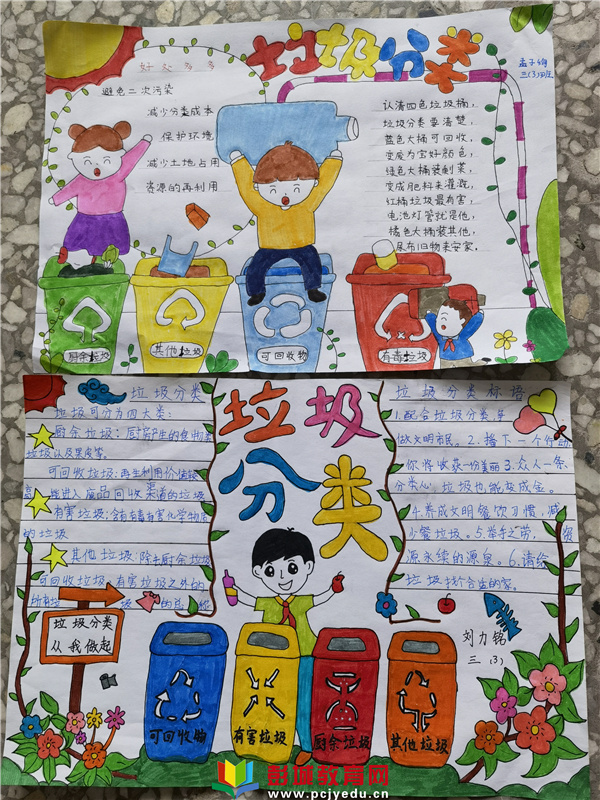 好处多多
垃圾分类
孟子
三(3)班
避免二次污染
减少分类成本
保护环境
减少土地占用
资源的再利用
认清四色垃圾桶,
垃圾分类要清楚,
蓝色大桶可回收,
变废为宝好颜色,
绿色大桶装剩菜,
变成肥料来灌溉,
红桶垃圾最有害,
电池灯管就是他,
橘色大桶装其他,
尿布旧物来安家。
厨余垃圾
其他垃圾
可回收物
有毒垃圾
垃圾分类
垃圾可分为四大类:
厨余垃圾:厨房产生的食物类
垃圾以及果皮等。
可回收垃圾:再生利用价值较
高,能进入废品回收渠道的垃圾
有害垃圾:含有毒有害化学物质
的垃圾
其他垃圾:除去厨余垃圾
可回收垃圾、有害垃圾之外的
所有垃圾
垃圾分类
从我做起
垃圾
分类
垃圾分类标语
1.配合垃圾分类,争
做文明市民。2.播下一个行动
你将收获一份美丽3.众人一条
分类心,垃圾也能变成金。
4.养成文明餐饮习惯,减
少餐垃圾。5.举手之劳,
源永续的源泉。6.请给
垃圾找个合适的家。
刘力铭
三(3)
可回收物
有害垃圾
厨余垃圾
其他垃圾
彭城教育网
www.pcjyedu.cn